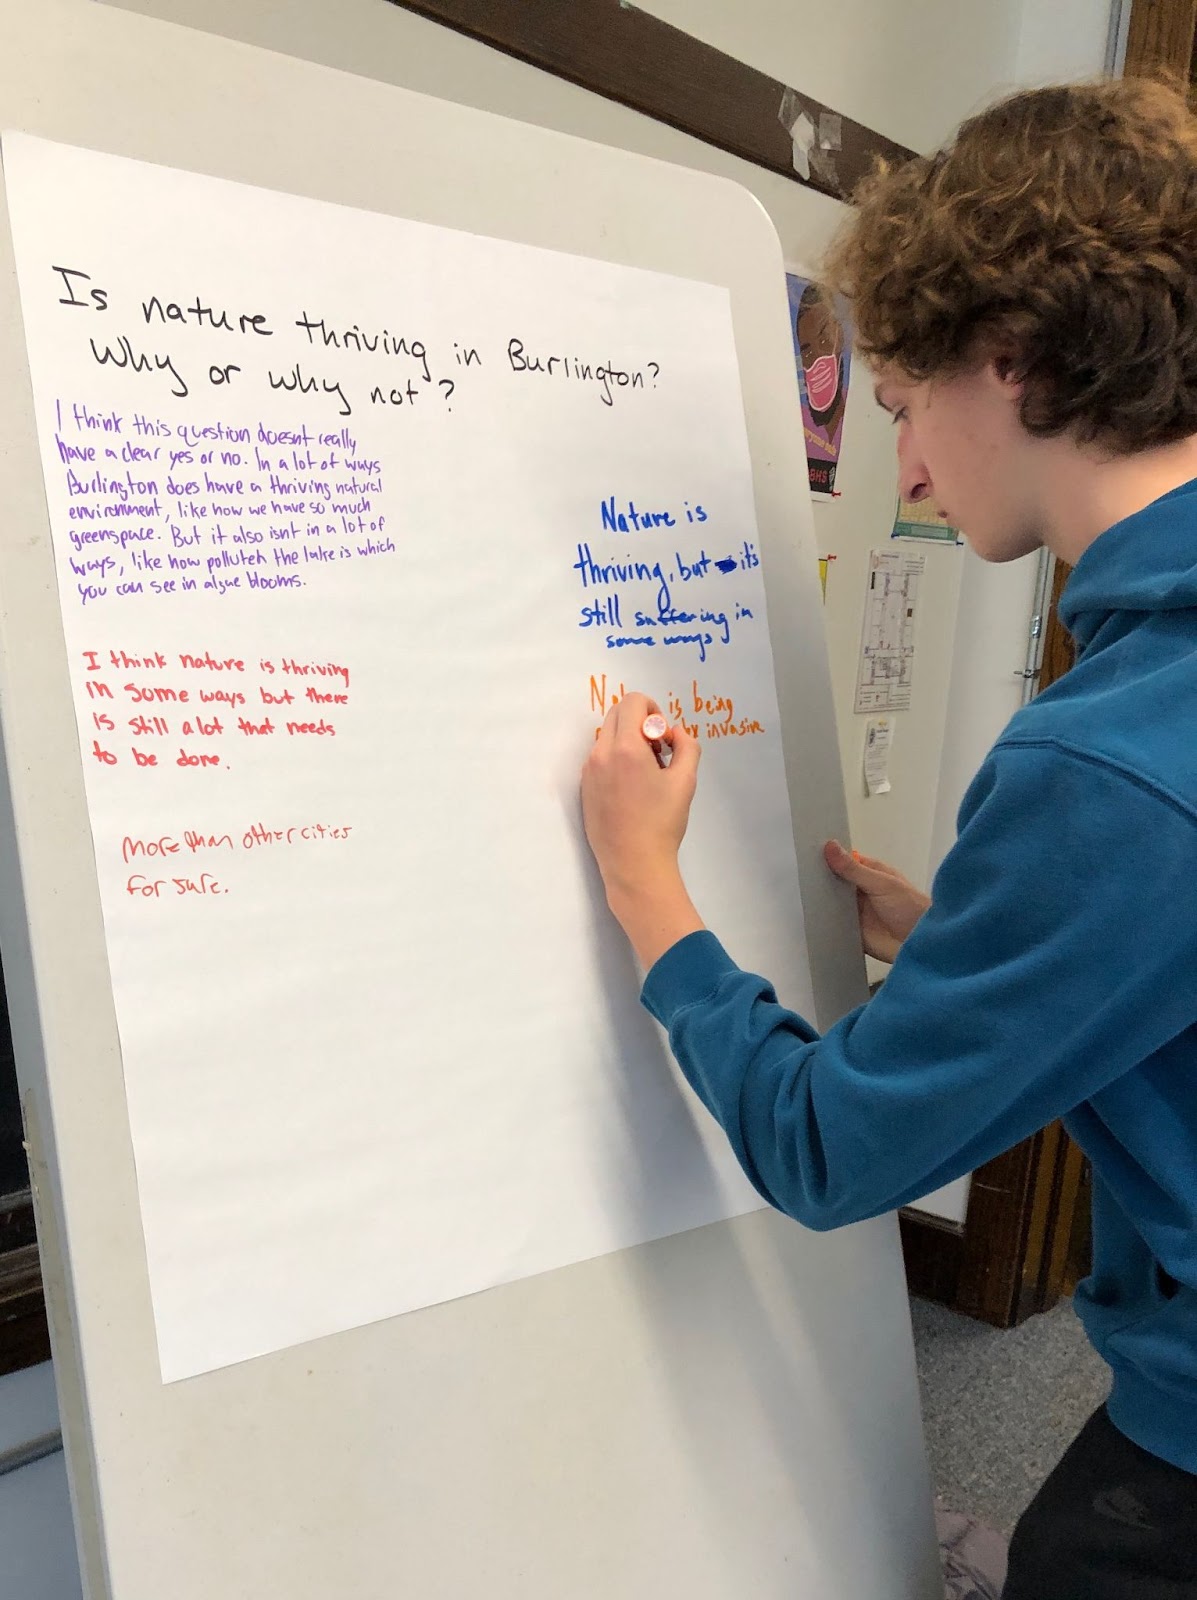 Is nature thriving in Burlington?
Why or why not?
I think this question doesnt really
have a clear yes or no. In a lot of ways
Burlington does have a thriving natural
environment, like how we have so much
greenspace. But it also isnt in a lot of
ways, like how polluteh the lake is which
you can see in algae blooms.
I think nature is thriving
in some ways but there
is still a lot that needs
to be done.
More than other cities
for sure.
Nature is
thriving, but it's
still suffering in
some ways
is being
by invasive
BHS